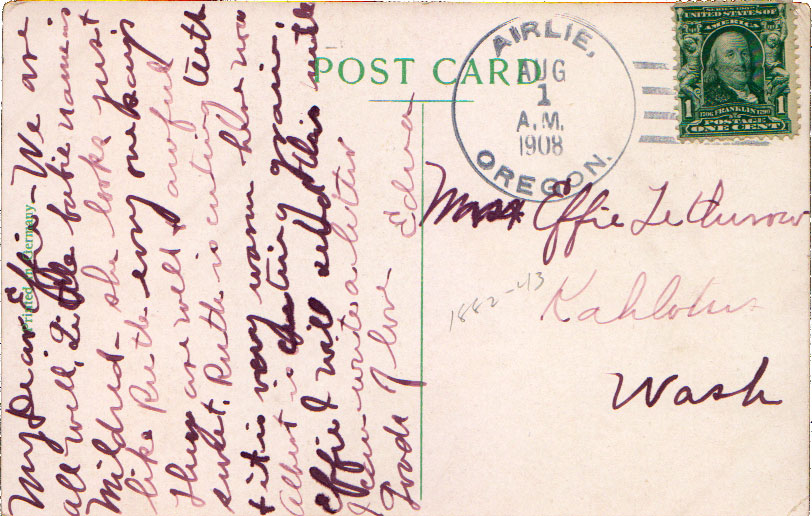 My Dear Effie - We are
all well. Little babie name is
Mildred - she looks just
like Ruth every one says
They are well & awful
sweet. Ruth is cutting teeth
& it is very warm here now
Albert is cutting grain,
Effie I will send this until
I can write a letter
Loads of love Edna
Printed in Germany
POST CARD
AIRLIE,
AUG
1
A.M.
1908
OREGON.
SERIES 1902
UNITED STATES OF
AMERICA
1 1
1706 FRANKLIN 1790
POSTAGE
ONE CENT
Effie Lethurow
1882-43
Kahlotus
Wash